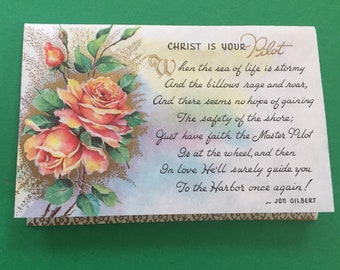 CHRIST IS YOUR Pilot
When the sea of life is stormy
And the billows rage and roar,
And there seems no hope of gaining
The safety of the shore;
Just have faith the Master Pilot
Is at the wheel, and then
In love He'll surely guide you
To the Harbor once again!
~ JON GILBERT